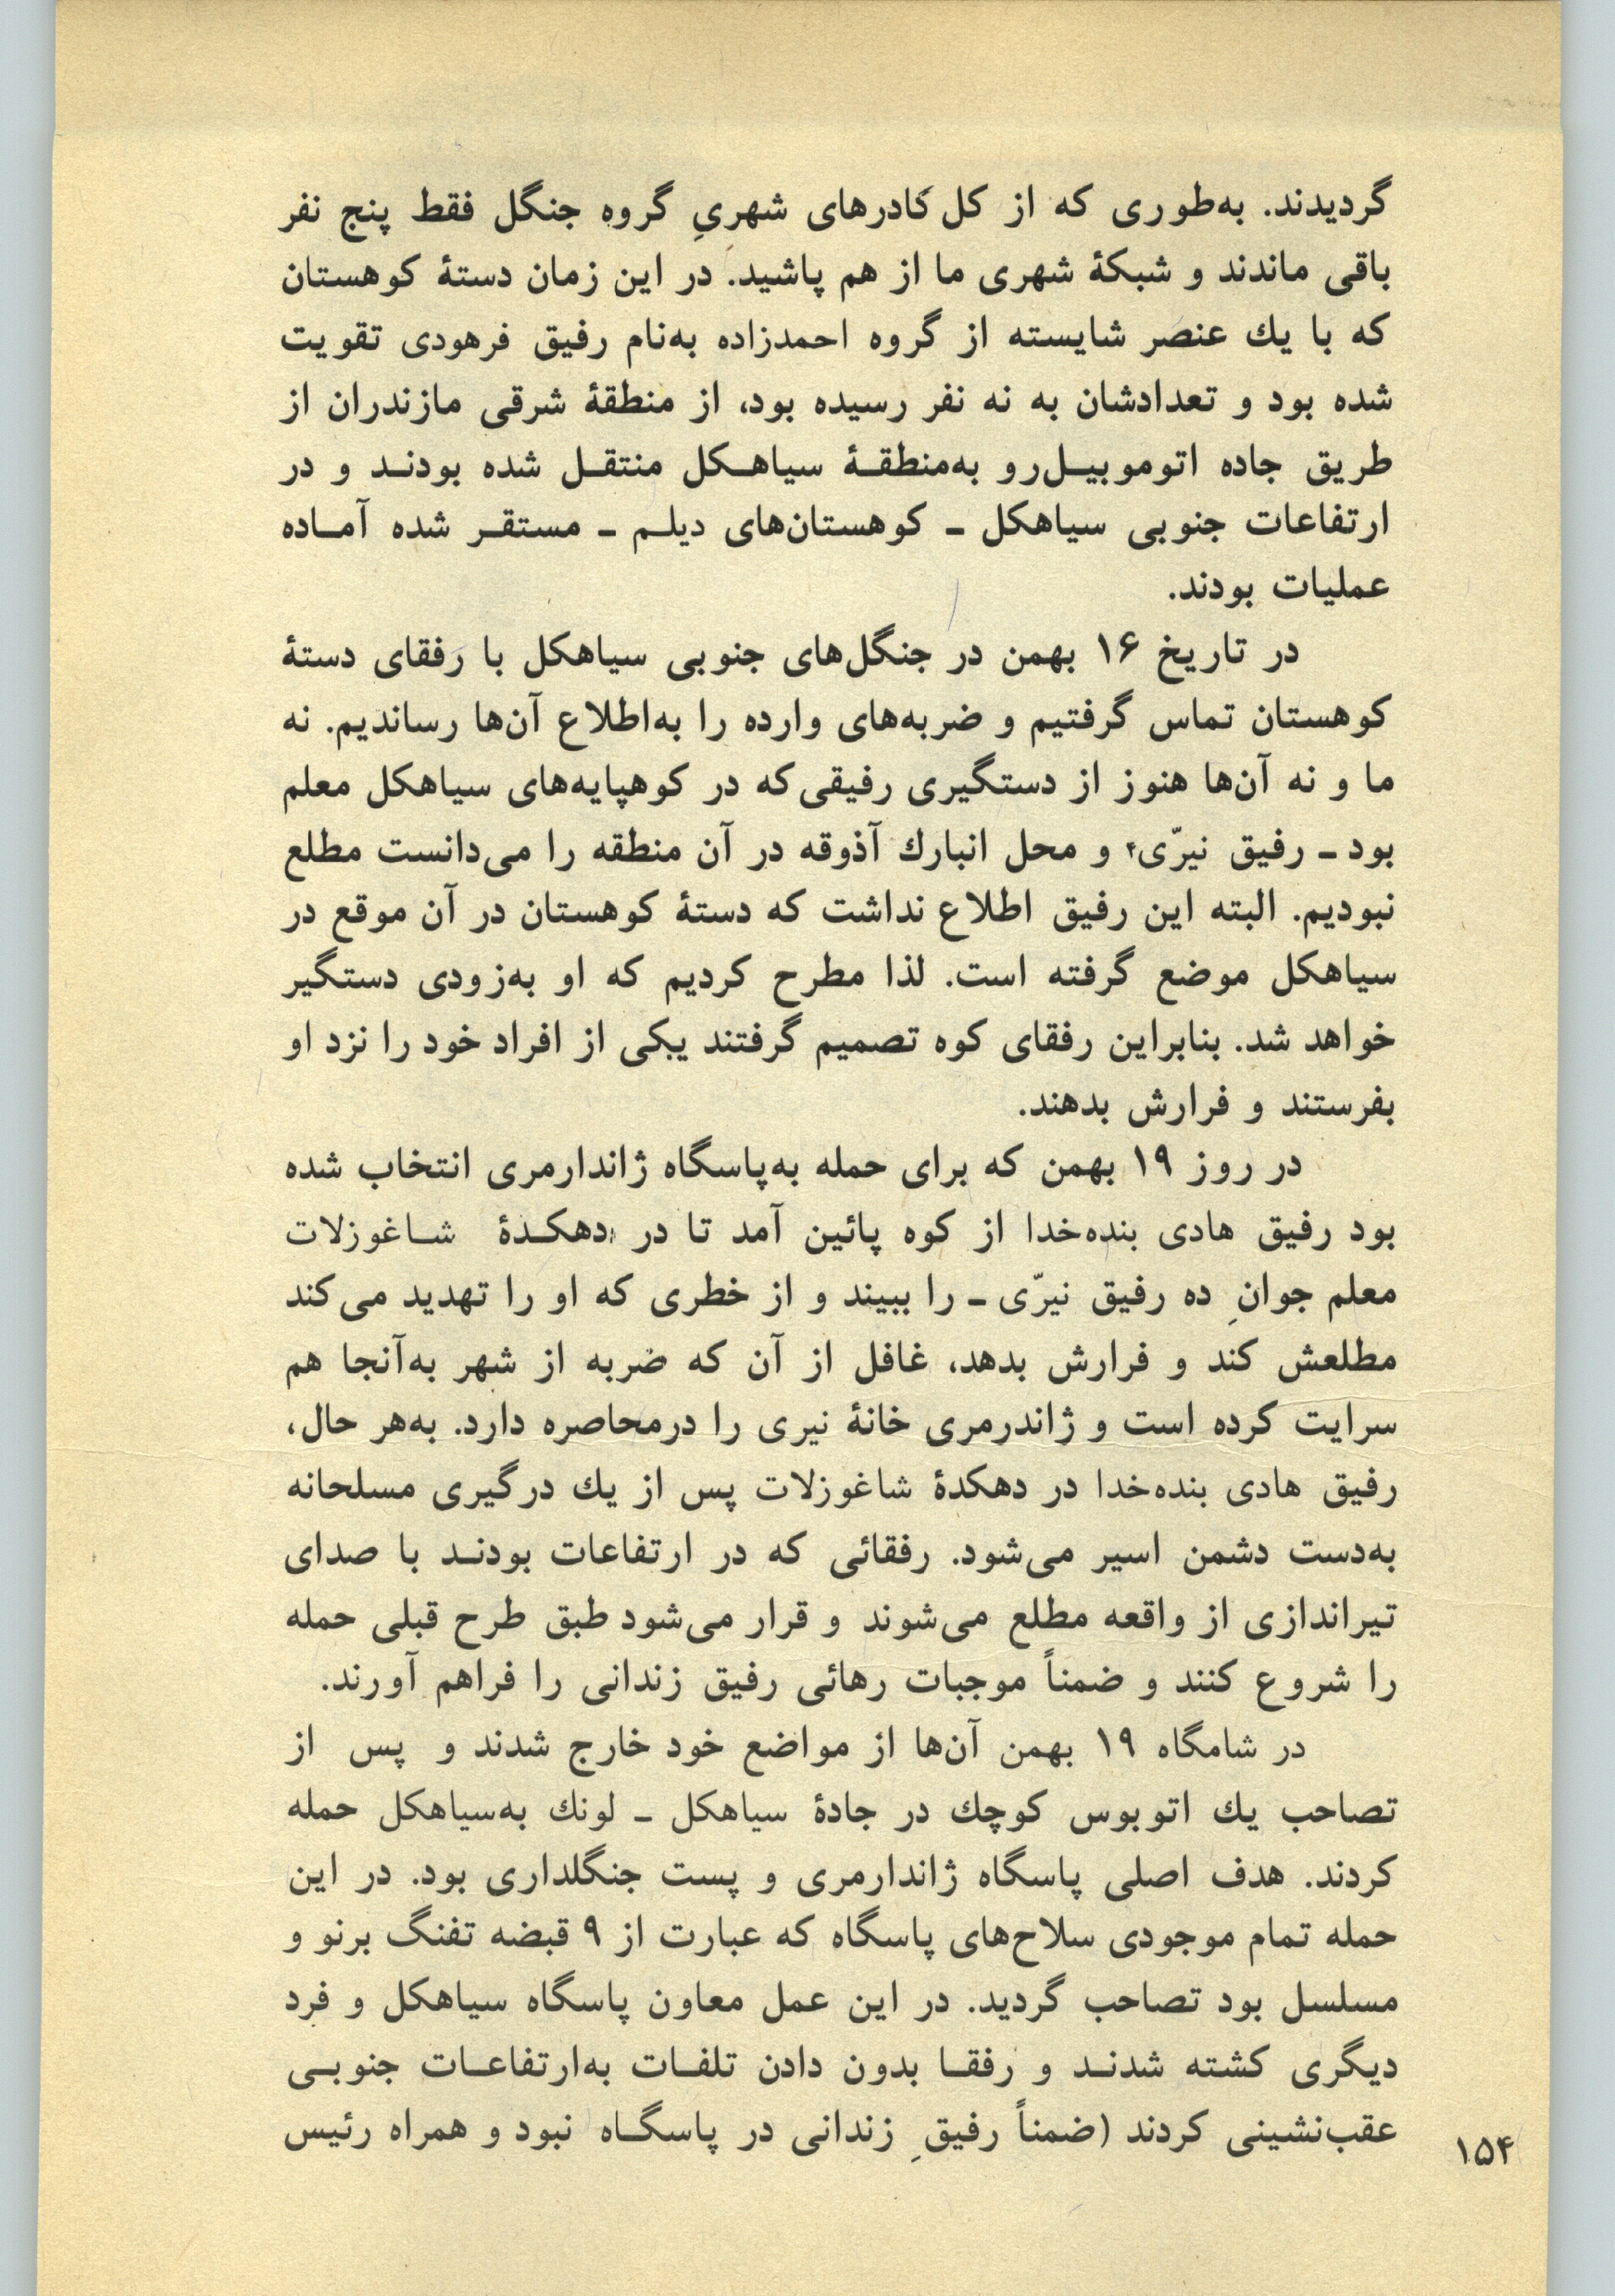 گردیدند. به‌طوری که از کل کادرهای شهریِ گروه جنگل فقط پنج نفر
باقی ماندند و شبکهٔ شهری ما از هم پاشید. در این زمان دستهٔ کوهستان
که با یك عنصر شایسته از گروه احمدزاده به‌نام رفیق فرهودی تقویت
شده بود و تعدادشان به نه نفر رسیده بود، از منطقهٔ شرقی مازندران از
طریق جاده اتوموبیـل‌رو به‌منطقـهٔ سیاهـکل منتقـل شده بودنـد و در
ارتفاعات جنوبی سیاهکل ـ کوهستان‌های دیلـم ـ مستقـر شده آمـاده
عملیات بودند.
در تاریخ ۱۶ بهمن در جنگل‌های جنوبی سیاهکل با رفقای دستهٔ
کوهستان تماس گرفتیم و ضربه‌های وارده را به‌اطلاع آن‌ها رساندیم. نه
ما و نه آن‌ها هنوز از دستگیری رفیقی‌که در کوهپایه‌های سیاهکل معلم
بود ـ رفیق نیرّی۴ و محل انبارك آذوقه در آن منطقه را می‌دانست مطلع
نبودیم. البته این رفیق اطلاع نداشت که دستهٔ کوهستان در آن موقع در
سیاهکل موضع گرفته است. لذا مطرح کردیم که او به‌زودی دستگیر
خواهد شد. بنابراین رفقای کوه تصمیم گرفتند یکی از افراد خود را نزد او
بفرستند و فرارش بدهند.
در روز ۱۹ بهمن که برای حمله به‌پاسگاه ژاندارمری انتخاب شده
بود رفیق هادی بنده‌خدا از کوه پائین آمد تا در دهکـدهٔ شـاغوزلات
معلم جوانِ ده رفیق نیرّی ـ را ببیند و از خطری که او را تهدید می‌کند
مطلعش کند و فرارش بدهد، غافل از آن که ضربه از شهر به‌آنجا هم
سرایت کرده است و ژاندرمری خانهٔ نیری را درمحاصره دارد. به‌هر حال،
رفیق هادی بنده‌خدا در دهکدهٔ شاغوزلات پس از یك درگیری مسلحانه
به‌دست دشمن اسیر می‌شود. رفقائی که در ارتفاعات بودنـد با صدای
تیراندازی از واقعه مطلع می‌شوند و قرار می‌شود طبق طرح قبلی حمله
را شروع کنند و ضمناً موجبات رهائی رفیق زندانی را فراهم آورند.
در شامگاه ۱۹ بهمن آن‌ها از مواضع خود خارج شدند و پس از
تصاحب یك اتوبوس کوچك در جادهٔ سیاهکل ـ لونك به‌سیاهکل حمله
کردند. هدف اصلی پاسگاه ژاندارمری و پست جنگلداری بود. در این
حمله تمام موجودی سلاح‌های پاسگاه که عبارت از ۹ قبضه تفنگ برنو و
مسلسل بود تصاحب گردید. در این عمل معاون پاسگاه سیاهکل و فرد
دیگری کشته شدنـد و رفقـا بدون دادن تلفـات به‌ارتفاعـات جنوبـی
عقب‌نشینی کردند (ضمناً رفیقِ زندانی در پاسگـاه نبود و همراه رئیس
۱۵۴